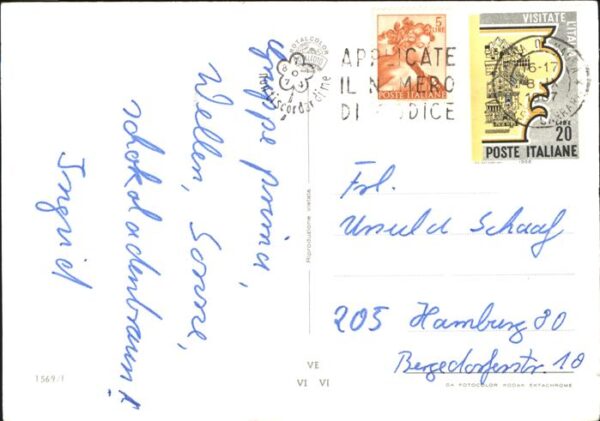 Gruppe prima,
Wellen, Sonne,
schokoladenbraun!
Ingrid
nontiscordardime
Riproduzione vietata
1569/I
VE
VI VI
5
LIRE
POSTE ITALIANE
APPLICATE
IL NUMERO
DI CODICE
VISITATE L'ITALIA
16-17
LIRE
20
POSTE ITALIANE
1966
Frl.
Ursula Schaaf
205 Hamburg 80
Bergedorferstr. 10
DA FOTOCOLOR KODAK EKTACHROME